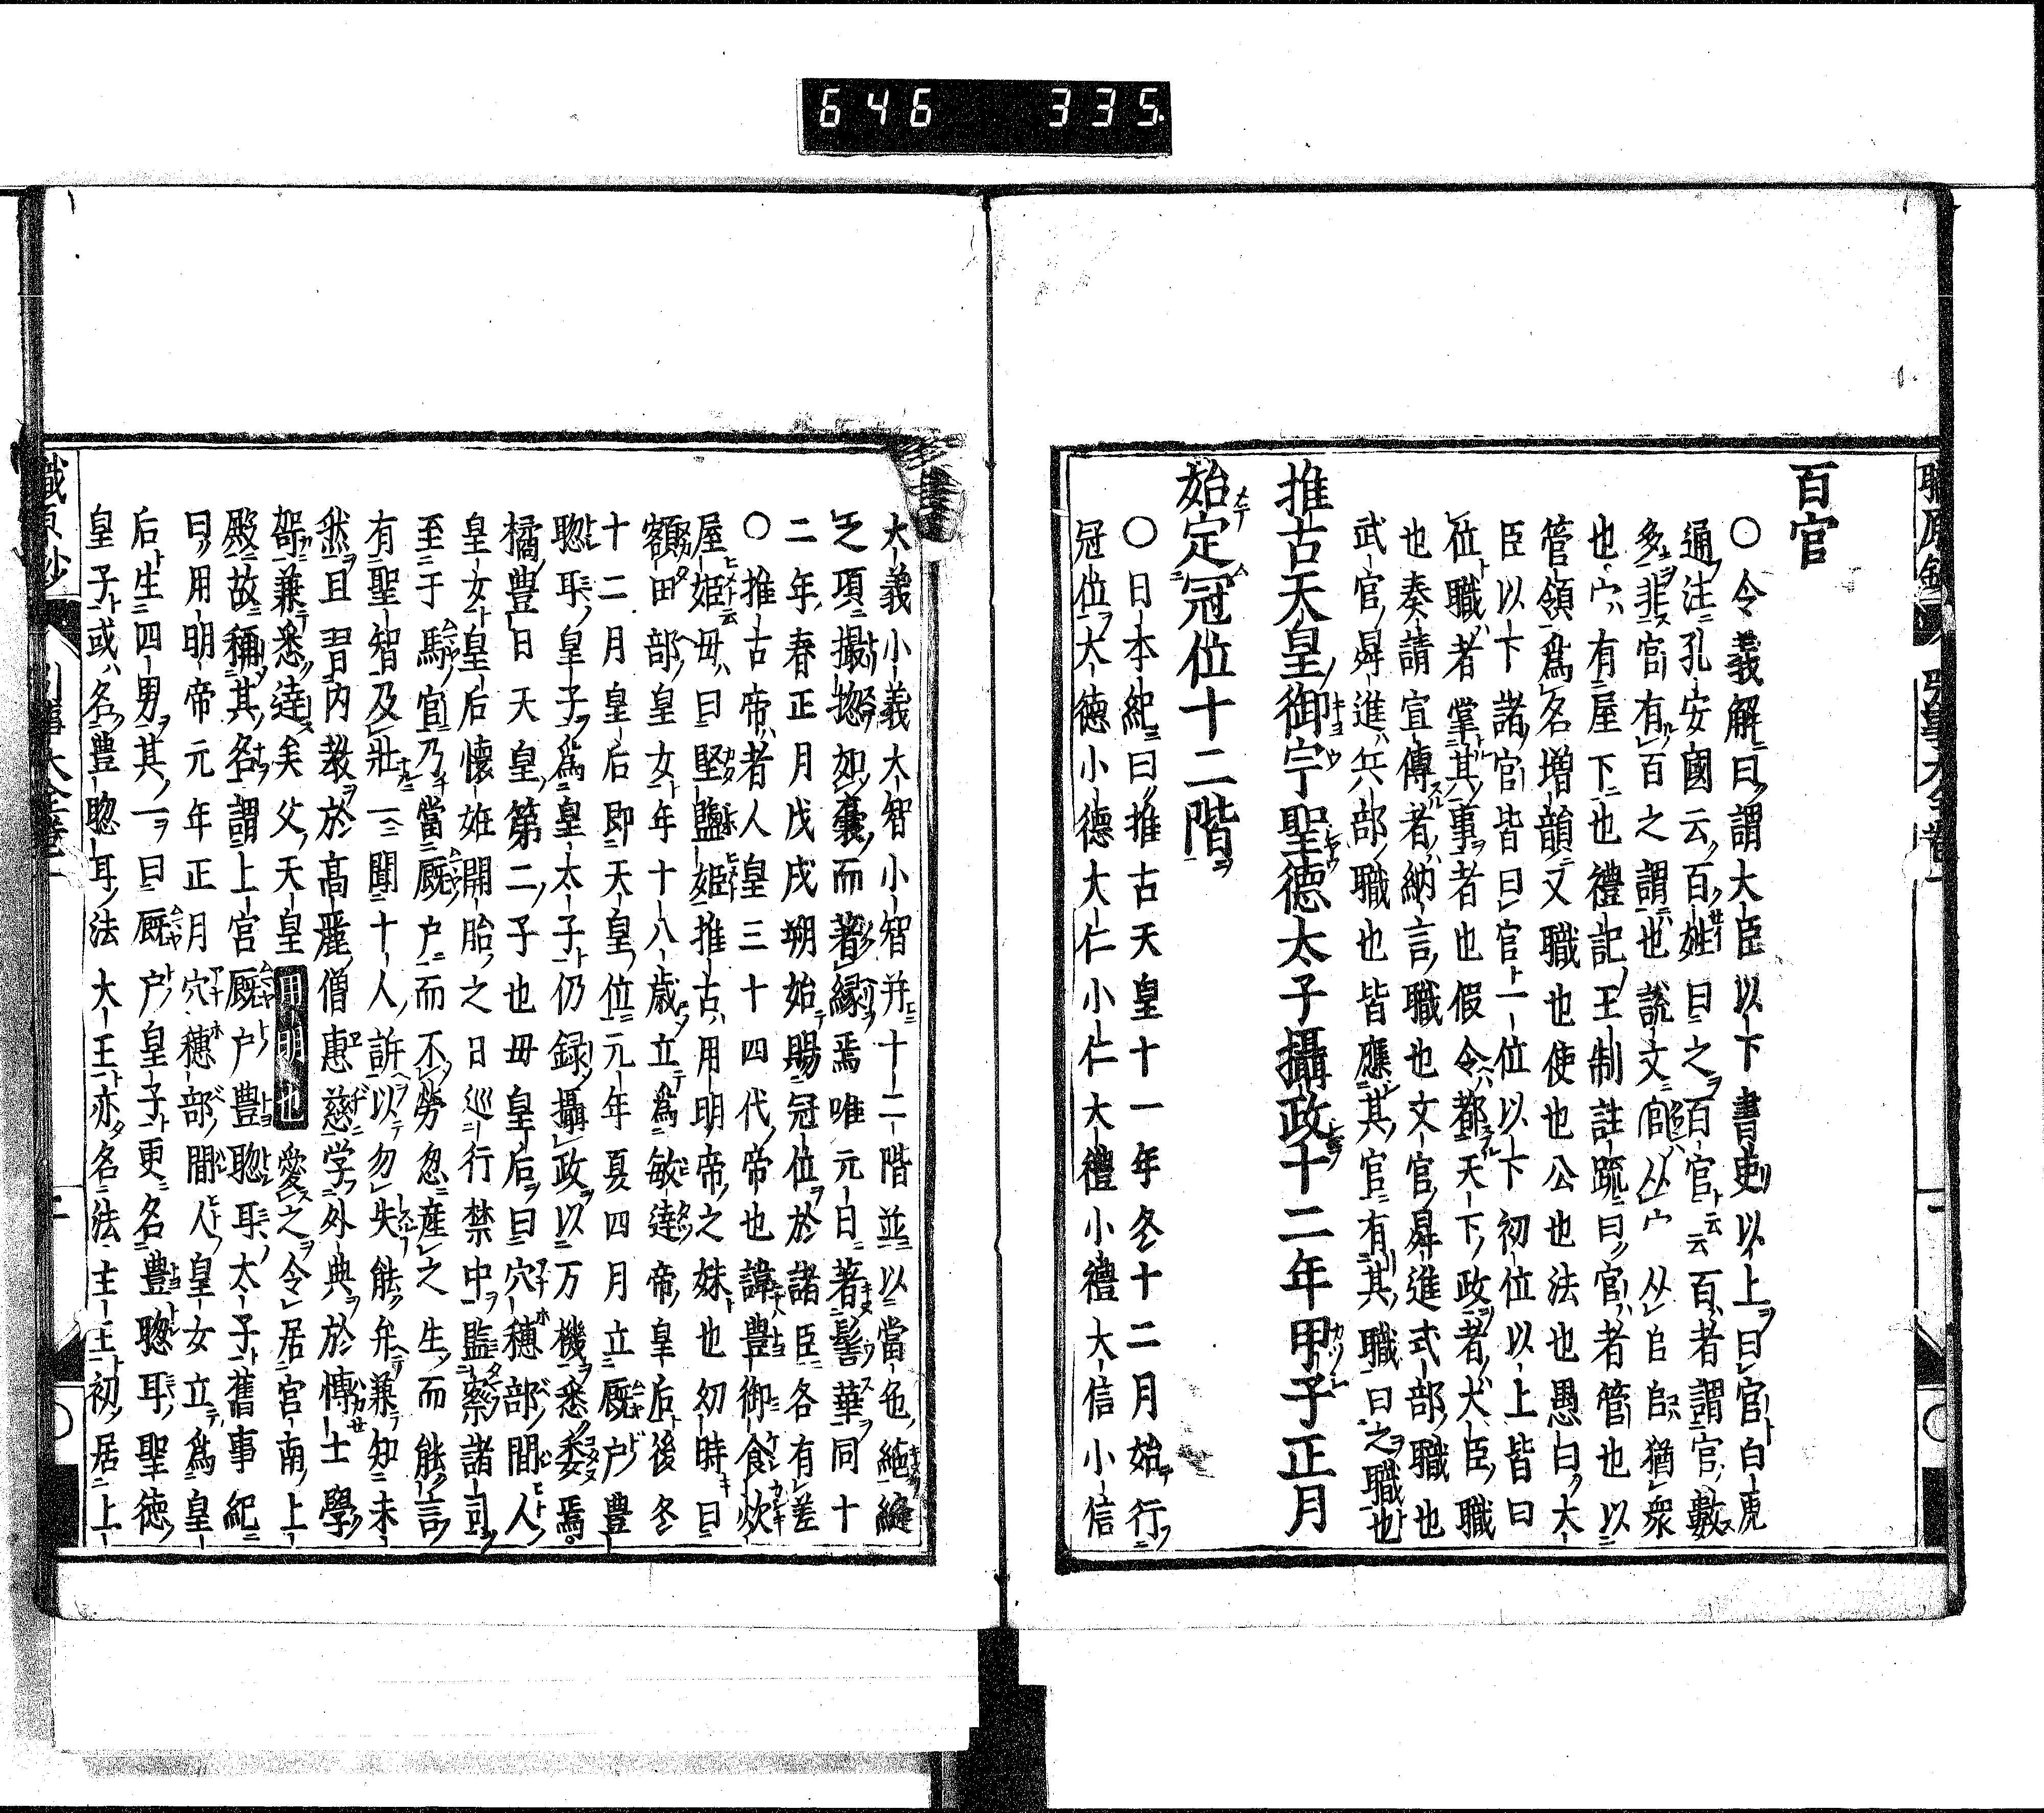 646 335
百官
〇令義解曰謂大臣以下書吏以上曰官白虎
通注孔安國云百姓曰之百官云云百者謂官數
多非官有百之謂也説文官从宀从㠯㠯猶衆
也宀有屋下也禮記王制註疏曰官者管也以
管領爲名増韻又職也使也公也法也愚白大
臣以下諸官皆曰官一位以下初位以上皆曰
位職者掌其事者也假令都天下政者大臣職
也奏請宣傳者納言職也文官舜進式部職也
武官舜進兵部職也皆應其官有其職曰之職也
推古天皇御宇聖德太子攝政十二年甲子正月
始定冠位十二階
〇日本紀曰推古天皇十一年冬十二月始行
冠位大德小德大仁小仁大禮小禮大信小信
大義小義大智小智并十二階並以當色絁縫
之項撮揔如囊而著縁焉唯元日著髻華同十
二年春正月戊戌朔始賜冠位於諸臣各有差
〇推古帝者人皇三十四代帝也諱豊御食炊
屋姫毋曰堅鹽姫推古用明帝之妹也初時曰
額田部皇女年十八歳立爲敏達帝皇后後冬
十二月皇后即天皇位元年夏四月立厩户豊
聦耳皇子爲皇太子仍録攝政以万機悉委焉
橘豊日天皇第二子也毋皇后曰穴穗部間人
皇女皇后懷姙開胎之日巡行禁中監察諸司
至于馬官乃當厩户而不勞忽産之生而能言
有聖智及壯一聞十人訴以勿失能弁兼知未
然且習内教於高麗僧惠慈学外典於博士學
哿兼悉達矣父天皇用明也愛之令居宮南上
殿故稱其名謂上宮厩户豊聦耳太子舊事紀
曰用明帝元年正月穴穗部間人皇女立爲皇
后生四男其一曰厩户皇子更名豊聦耳聖徳
皇子或名豊聦耳法大王亦名法主王初居上